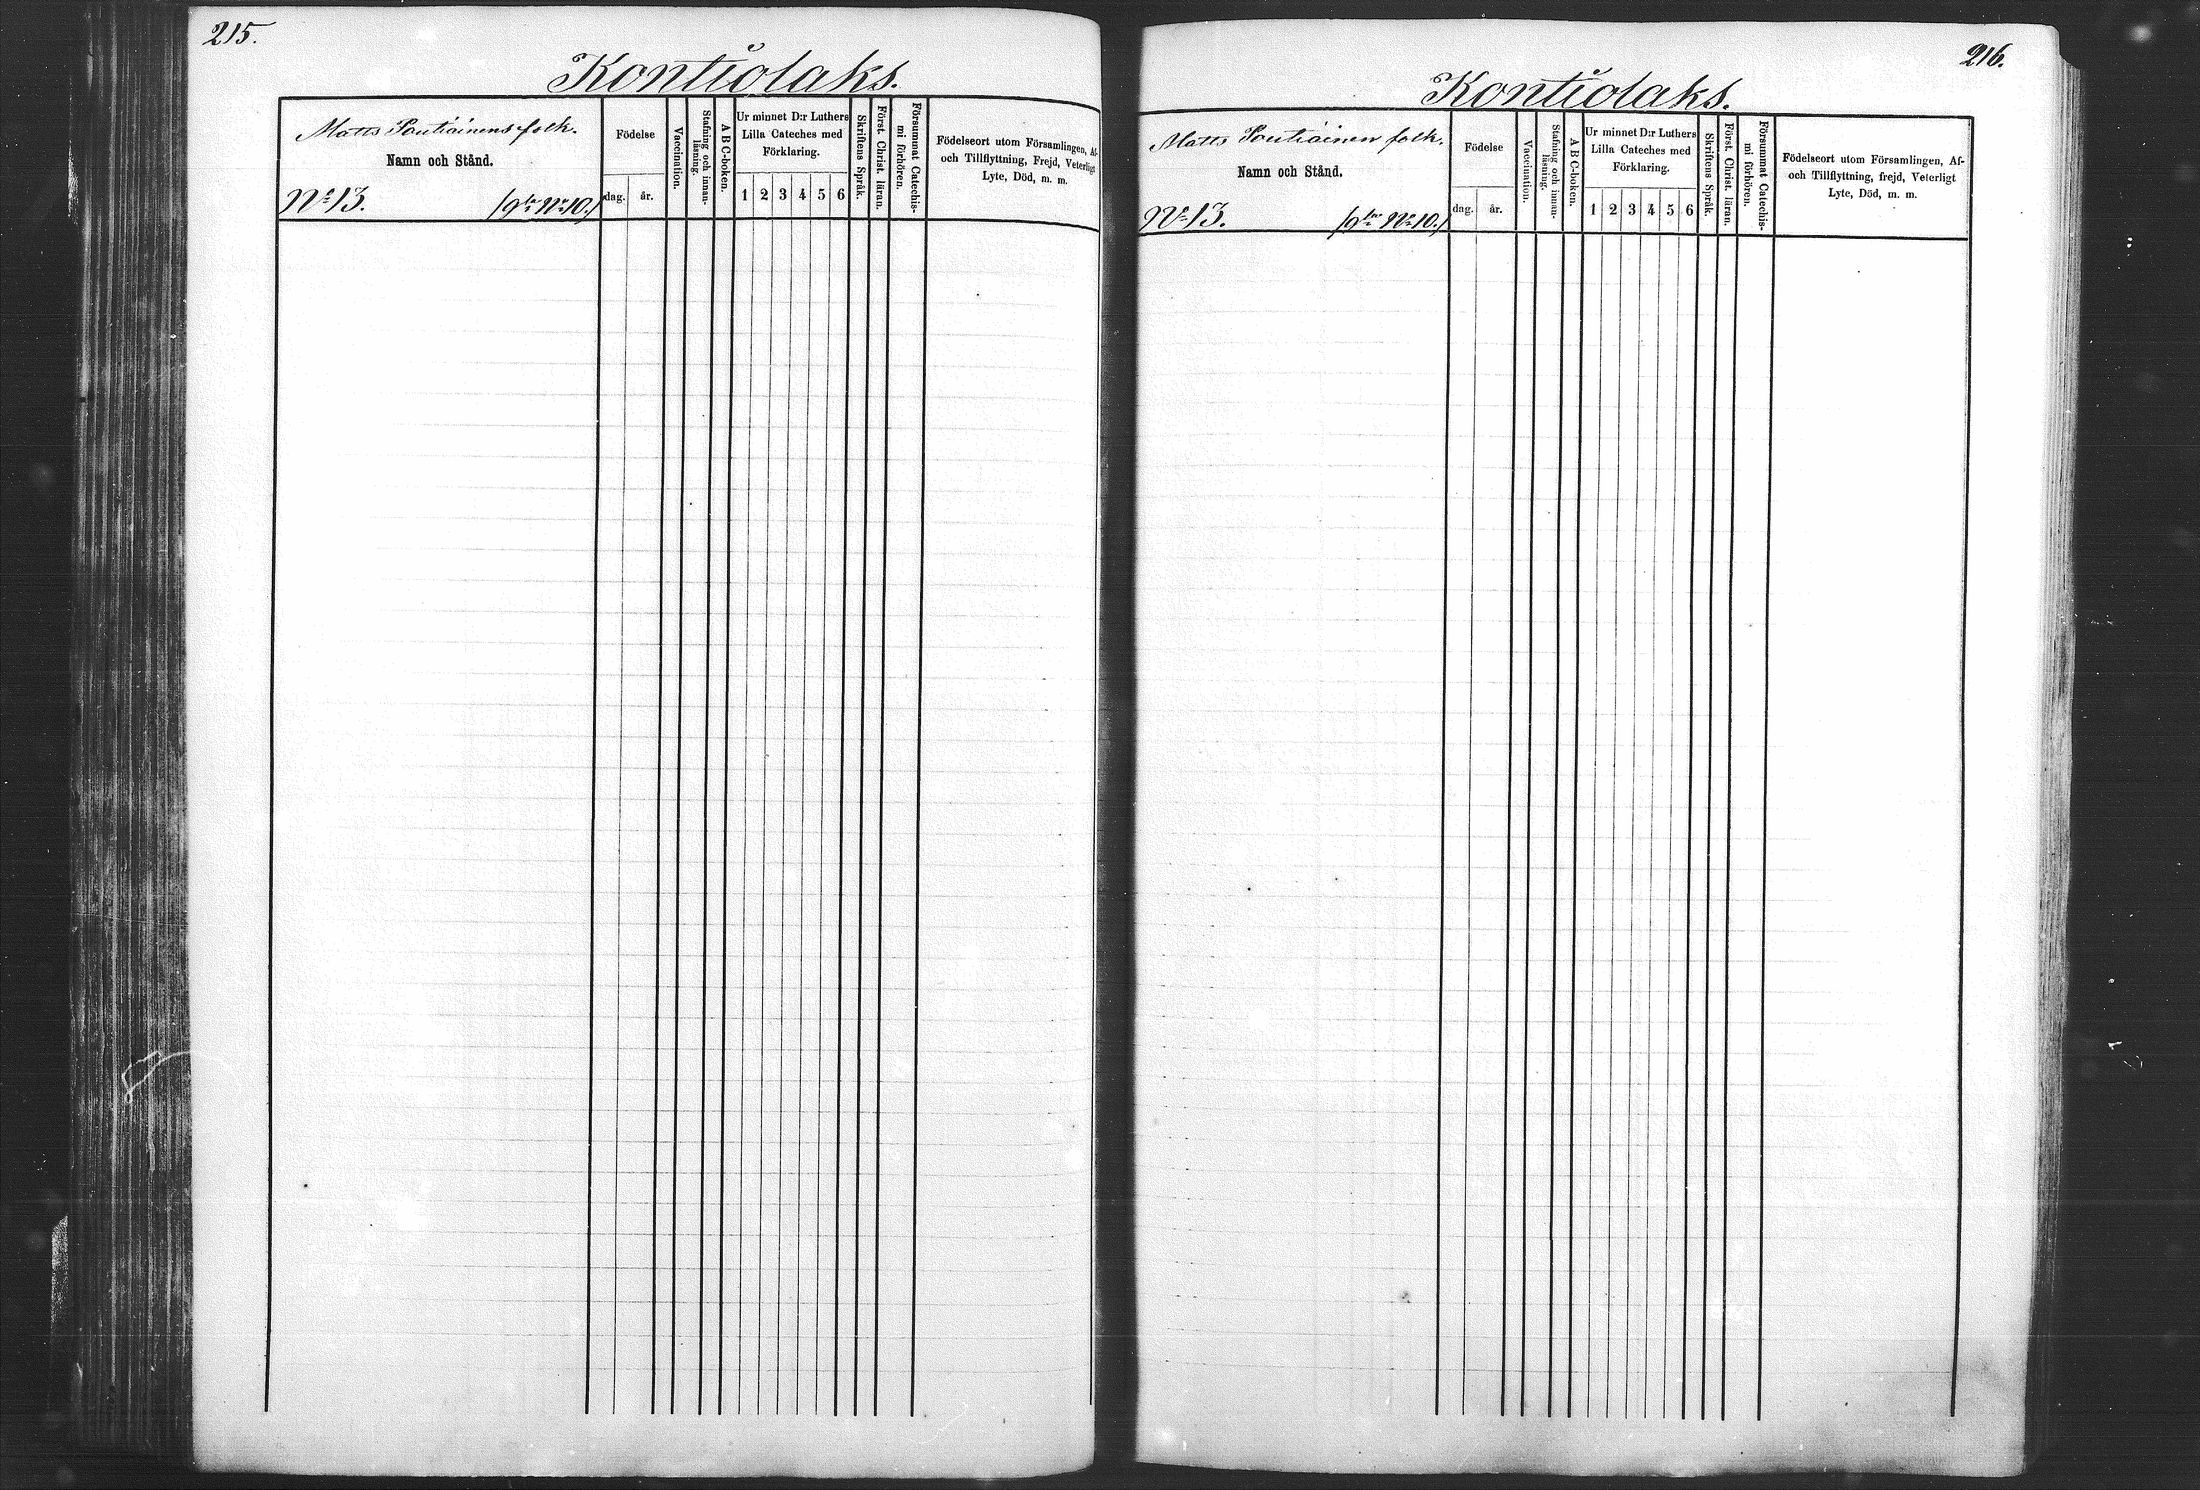 215.
Kontiolaks.
Matts Pautiainens folk.
Namn och Stånd.
No 13.
Födelse
dag. år.
Vaccination.
Stafning och innan-
läsning.
A B C-boken.
Ur minnet D:r Luthers
Lilla Cateches med
Förklaring.
1 2 3 4 5 6
Skriftens Språk.
Först. Christ. läran.
Försummat Catechis-
mi förhören.
Födelseort utom Församlingen, Af-
och Tillflyttning, Frejd, Veterligt
Lyte, Död, m. m.
216.
Kontiolaks.
Matts Pautiainen folk.
Namn och Stånd.
No 13.
Födelse
dag. år.
Vaccination.
Stafning och innan-
läsning.
A B C-boken.
Ur minnet D:r Luthers
Lilla Cateches med
Förklaring.
1 2 3 4 5 6
Skriftens Språk.
Först. Christ. läran.
Försummat Catechis-
mi förhören.
Födelseort utom Församlingen, Af-
och Tillflyttning, frejd, Veterligt
Lyte, Död, m. m.